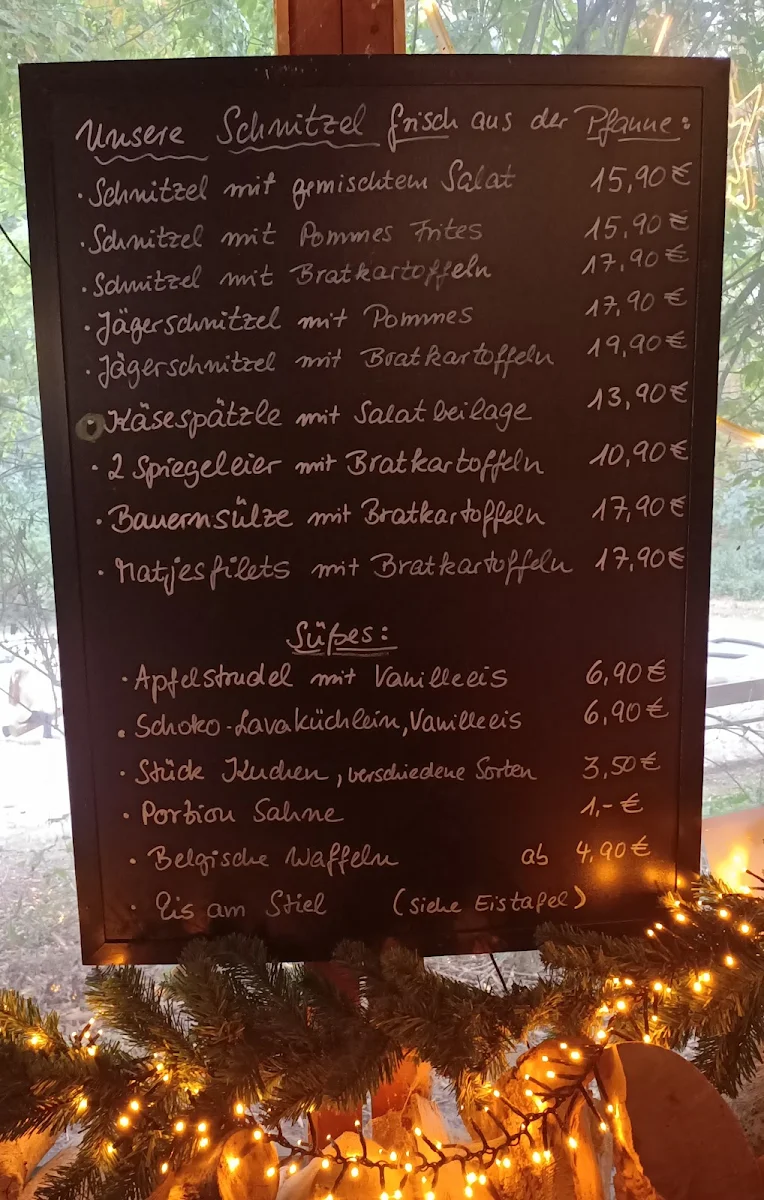 Unsere Schnitzel frisch aus der Pfanne:
· Schnitzel mit gemischtem Salat 15,90 €
· Schnitzel mit Pommes Frites 15,90 €
· Schnitzel mit Bratkartoffeln 17,90 €
· Jägerschnitzel mit Pommes 17,90 €
· Jägerschnitzel mit Bratkartoffeln 19,90 €
· Käsespätzle mit Salatbeilage 13,90 €
· 2 Spiegeleier mit Bratkartoffeln 10,90 €
· Bauernsülze mit Bratkartoffeln 17,90 €
· Matjesfilets mit Bratkartoffeln 17,90 €
Süßes:
· Apfelstrudel mit Vanilleeis 6,90 €
· Schoko-Lavaküchlein, Vanilleeis 6,90 €
· Stück Kuchen, verschiedene Sorten 3,50 €
· Portion Sahne 1,- €
· Belgische Waffeln ab 4,90 €
· Eis am Stiel (siehe Eistafel)